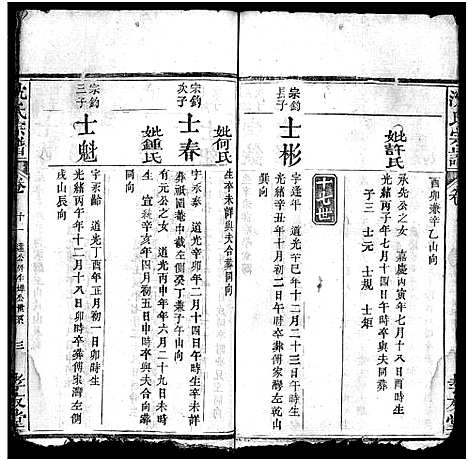 沈氏宗譜
卷
酉卯兼辛乙山向
妣許氏
承先公之女　嘉慶丙寅年七月十八日酉時生
光緒丙子年七月十四日午時卒與夫同葬
子三　士元　士規　士矩
十七世
宗鈞長子
士彬
字逢年　道光　巳年十二月二十三日午時生
光緒辛丑年十月初二日午時卒葬傅家灣左乾山
巽向
妣何氏
生卒未詳與夫合葬同向
宗鈞次子
士春
字永泰　道光辛卯年二月十四日午時生卒未詳
葬祇園菴中截左側癸丁兼子午山向
妣鍾氏
有元公之女　道光丙申年六月二十九日未時
生　宣統辛亥年四月初五日申時卒與夫合葬同向
宗鈞三子
士魁
字永齡　道光丁酉年正月初一日卯時生
光緒丙午年十二月十八日卯時卒葬傅家灣左側
戌山辰向
沈氏宗譜
卷十
十一
三
孝友堂